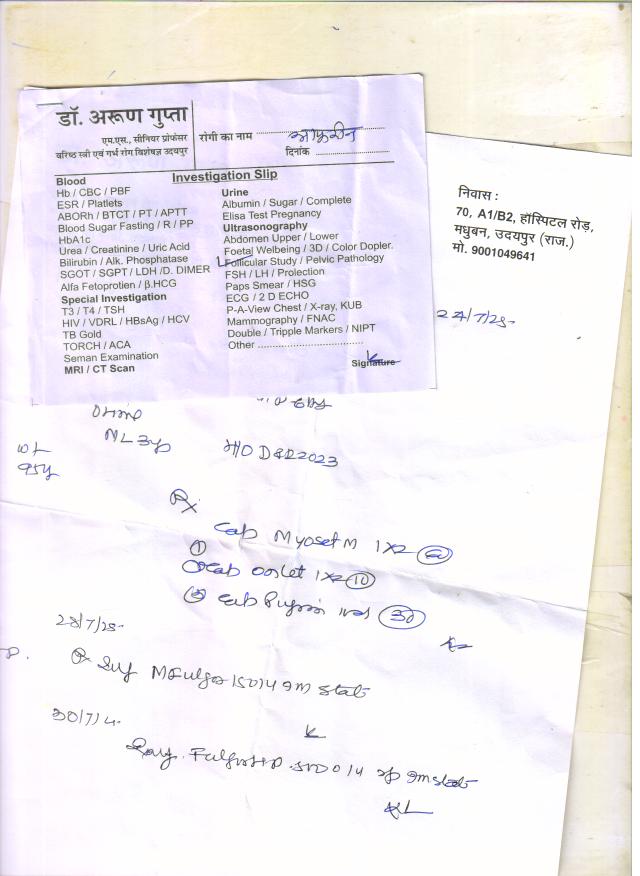 डॉ. अरूण गुप्ता
एम.एस., सीनियर प्रोफेसर
वरिष्ठ स्त्री एवं गर्भ रोग विशेषज्ञ उदयपुर
रोगी का नाम
दिनांक
Investigation Slip
Blood
Hb / CBC / PBF
ESR / Platlets
ABORh / BTCT / PT / APTT
Blood Sugar Fasting / R / PP
HbA1c
Urea / Creatinine / Uric Acid
Bilirubin / Alk. Phosphatase
SGOT / SGPT / LDH /D. DIMER
Alfa Fetoprotien / β.HCG
Special Investigation
T3 / T4 / TSH
HIV / VDRL / HBsAg / HCV
TB Gold
TORCH / ACA
Seman Examination
MRI / CT Scan
Urine
Albumin / Sugar / Complete
Elisa Test Pregnancy
Ultrasonography
Abdomen Upper / Lower
Foetal Welbeing / 3D / Color Dopler.
Follicular Study / Pelvic Pathology
FSH / LH / Prolection
Paps Smear / HSG
ECG / 2 D ECHO
P-A-View Chest / X-ray, KUB
Mammography / FNAC
Double / Tripple Markers / NIPT
Other
Signature
निवास :
70, A1/B2, हॉस्पिटल रोड़,
मधुबन, उदयपुर (राज.)
मो. 9001049641
24/7/25
ML 3yr
H/O D&C 2023
wt
Rx
Myoset M 1x2 60
1x2 10
30
28/7/25
Rx
stat
30/7/
stat